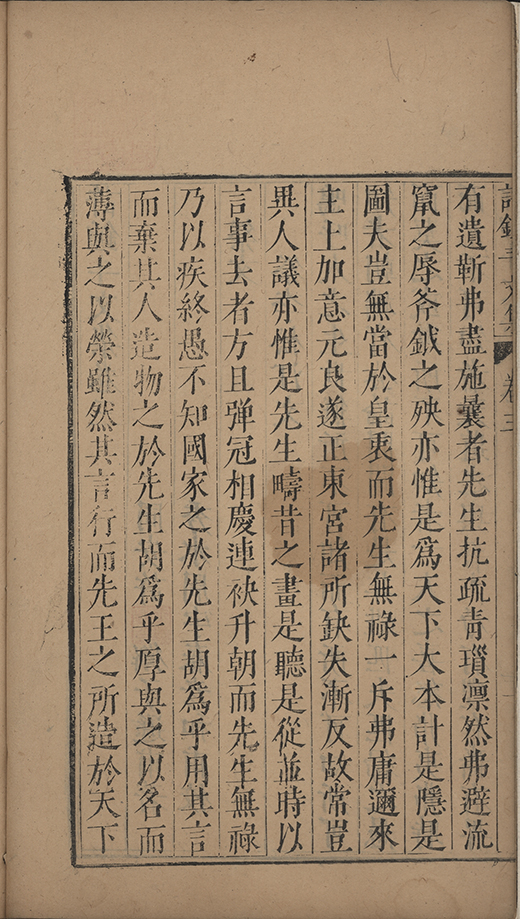 卷三
有遺靳弗盡施曩者先生抗疏青瑣凛然弗避流
竄之辱斧鉞之殃亦惟是爲天下大本計是隱是
圖夫豈無當於皇衷而先生無祿一斥弗庸邇來
主上加意元良遂正東宮諸所缺失漸反故常豈
異人議亦惟是先生疇昔之畫是聽是從並時以
言事去者方且彈冠相慶連袂升朝而先生無祿
乃以疾終愚不知國家之於先生胡爲乎用其言
而棄其人造物之於先生胡爲乎厚與之以名而
薄與之以榮雖然其言行而先王之所造於天下